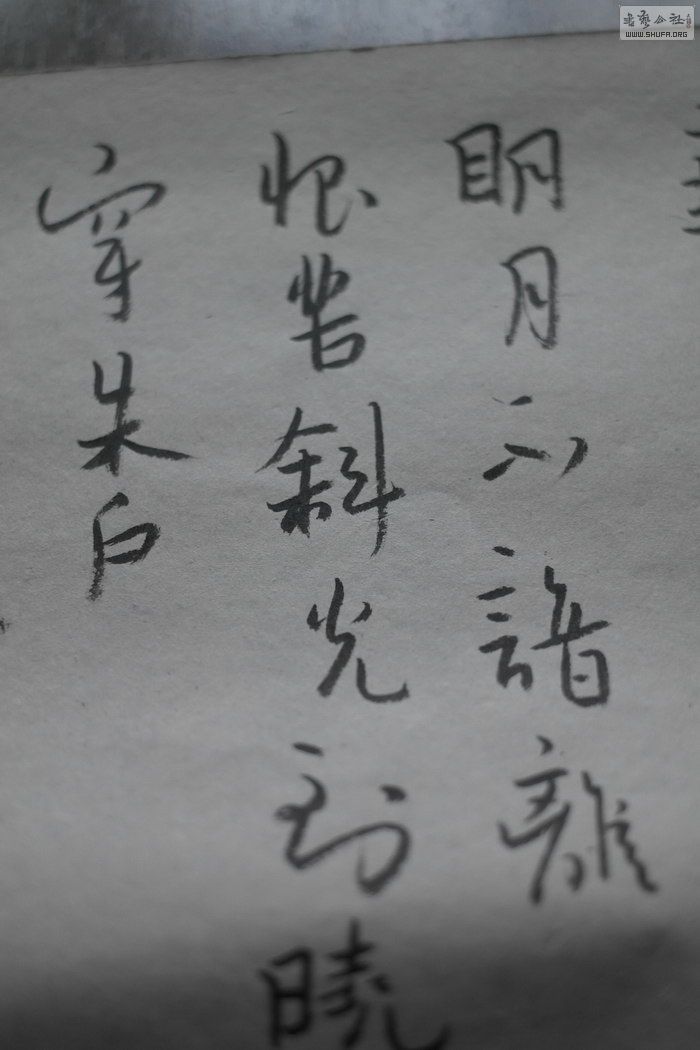 明月不諳離
恨苦斜光到曉
穿朱户
書藝公社
WWW.SHUFA.ORG